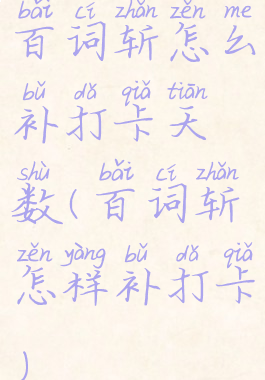 bǎi cí zhǎn zěn me
百词斩怎么
bǔ dǎ qiǎ tiān
补打卡天
shù bǎi cí zhǎn
数(百词斩
zěn yàng bǔ dǎ qiǎ
怎样补打卡
)